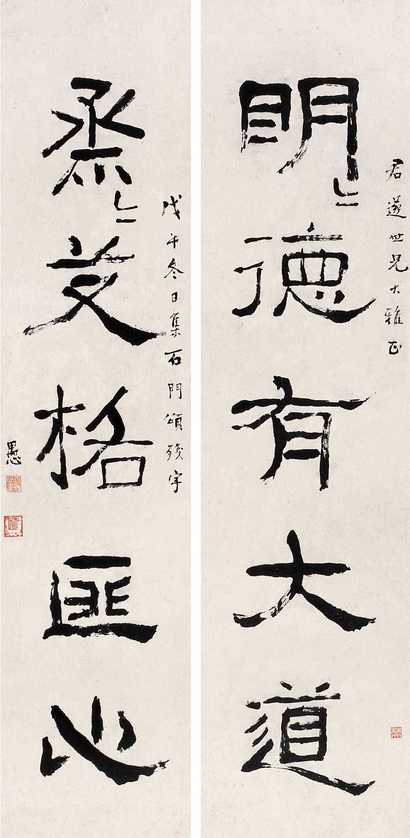 君遂世兄大雅正
明〻德有大道
戊午冬日集石門頌殘字
烝〻艾格匪心
愚